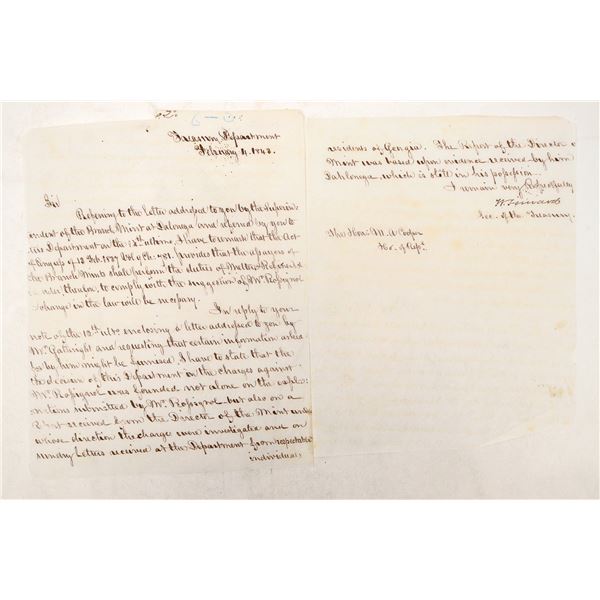 Treasury Department
February 4. 1843.
Sir
Referring to the letter addressed to you by the Superin
tendent of the Branch Mint at Dalonega and referred by you to
this Department on the 12th ultimo, I have to remark that the Act
of Congress of 13 Feb. 1837 provides that the assayers of
the Branch Mints shall perform the duties of Melter Refiner &
order, therefore, to comply with the suggestion of Mr Rossignol
a change in the law will be necessary.
In reply to your
note of the 13th ulto enclosing a letter addressed to you by
Mr. Gathright and requesting that certain information asked
for by him might be furnished I have to state that the
the decision of this Department on the charges against
Mr Rossignol was founded not alone on the expla=
nations submitted by Mr Rossignol but also on a
Rept received from the Director of the Mint under
whose direction the charges were investigated and on
sundry letters received at the Department from respectable
individuals
residents of Georgia. The Report of the Director of
Mint was based upon evidence received by him
Dahlonega which is still in his possession.
I remain very Respectfully
W Forward
Sec. of the Treasury.
The Hon: M. A Cooper
Ho. of Reps.